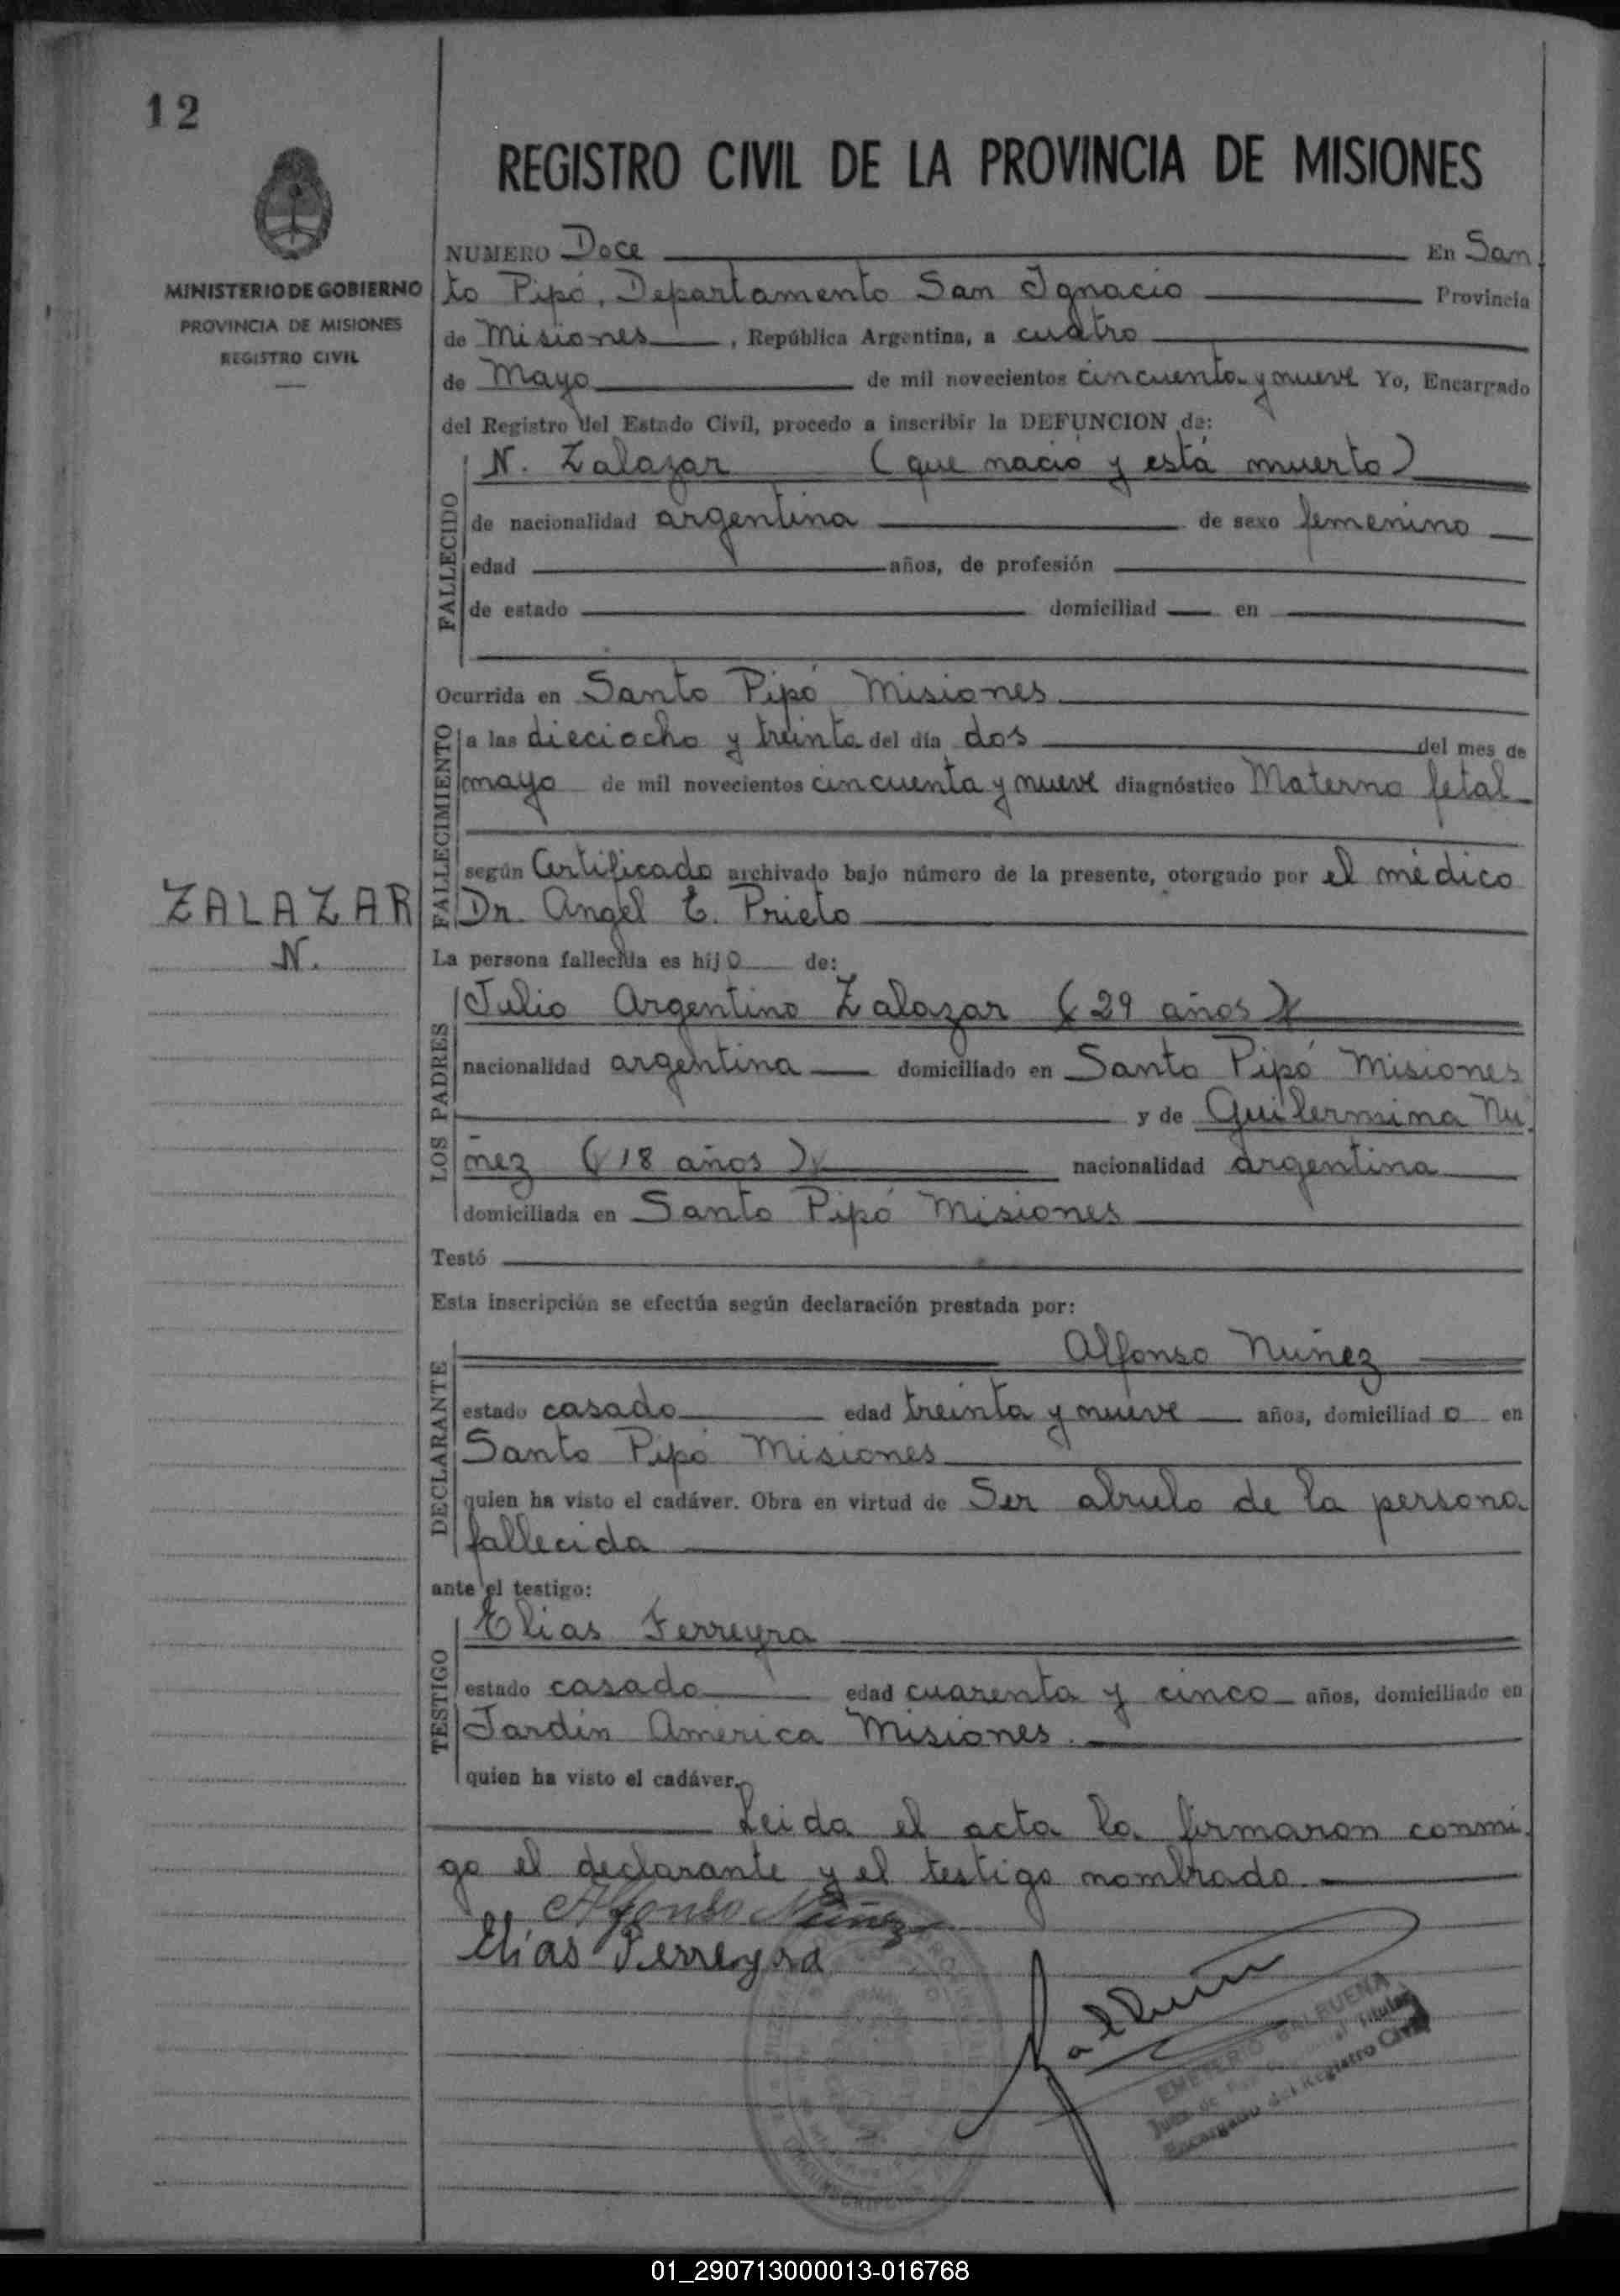 12
REGISTRO CIVIL DE LA PROVINCIA DE MISIONES
MINISTERIO DE GOBIERNO
PROVINCIA DE MISIONES
REGISTRO CIVIL
NUMERO Doce En San
to Pipó, Departamento San Ignacio Provincia
de Misiones, República Argentina, a cuatro
de Mayo de mil novecientos cincuenta y nueve Yo, Encargado
del Registro del Estado Civil, procedo a inscribir la DEFUNCION de:
FALLECIDO
N. Zalazar (que nació y está muerto)
de nacionalidad argentina de sexo femenino
edad años, de profesión
de estado domiciliad en
Ocurrida en Santo Pipó Misiones
FALLECIMIENTO
a las dieciocho y treinta del día dos del mes de
mayo de mil novecientos cincuenta y nueve diagnóstico Materno fetal
según Certificado archivado bajo número de la presente, otorgado por el médico
Dr. Angel E. Prieto
ZALAZAR
N.
La persona fallecida es hijo de:
LOS PADRES
Julio Argentino Zalazar (29 años)
nacionalidad argentina domiciliado en Santo Pipó Misiones
y de Guilermina Nu
ñez (18 años) nacionalidad argentina
domiciliada en Santo Pipó Misiones
Testó
Esta inscripción se efectúa según declaración prestada por:
DECLARANTE
Alfonso Nuñez
estado casado edad treinta y nueve años, domiciliado en
Santo Pipó Misiones
quien ha visto el cadáver. Obra en virtud de Ser abuelo de la persona
fallecida
ante el testigo:
TESTIGO
Elias Ferreyra
estado casado edad cuarenta y cinco años, domiciliado en
Jardín América Misiones.
quien ha visto el cadáver.
Leida el acta la firmaron conmi
go el declarante y el testigo nombrado.
Alfonso Núñez
Elías Ferreyra
EMETERIO BALBUENA
Juez de Paz Titular
Encargado del Registro Civil
01_290713000013-016768